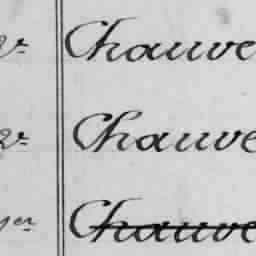 2e Chauve
2e Chauve
yer Chauve